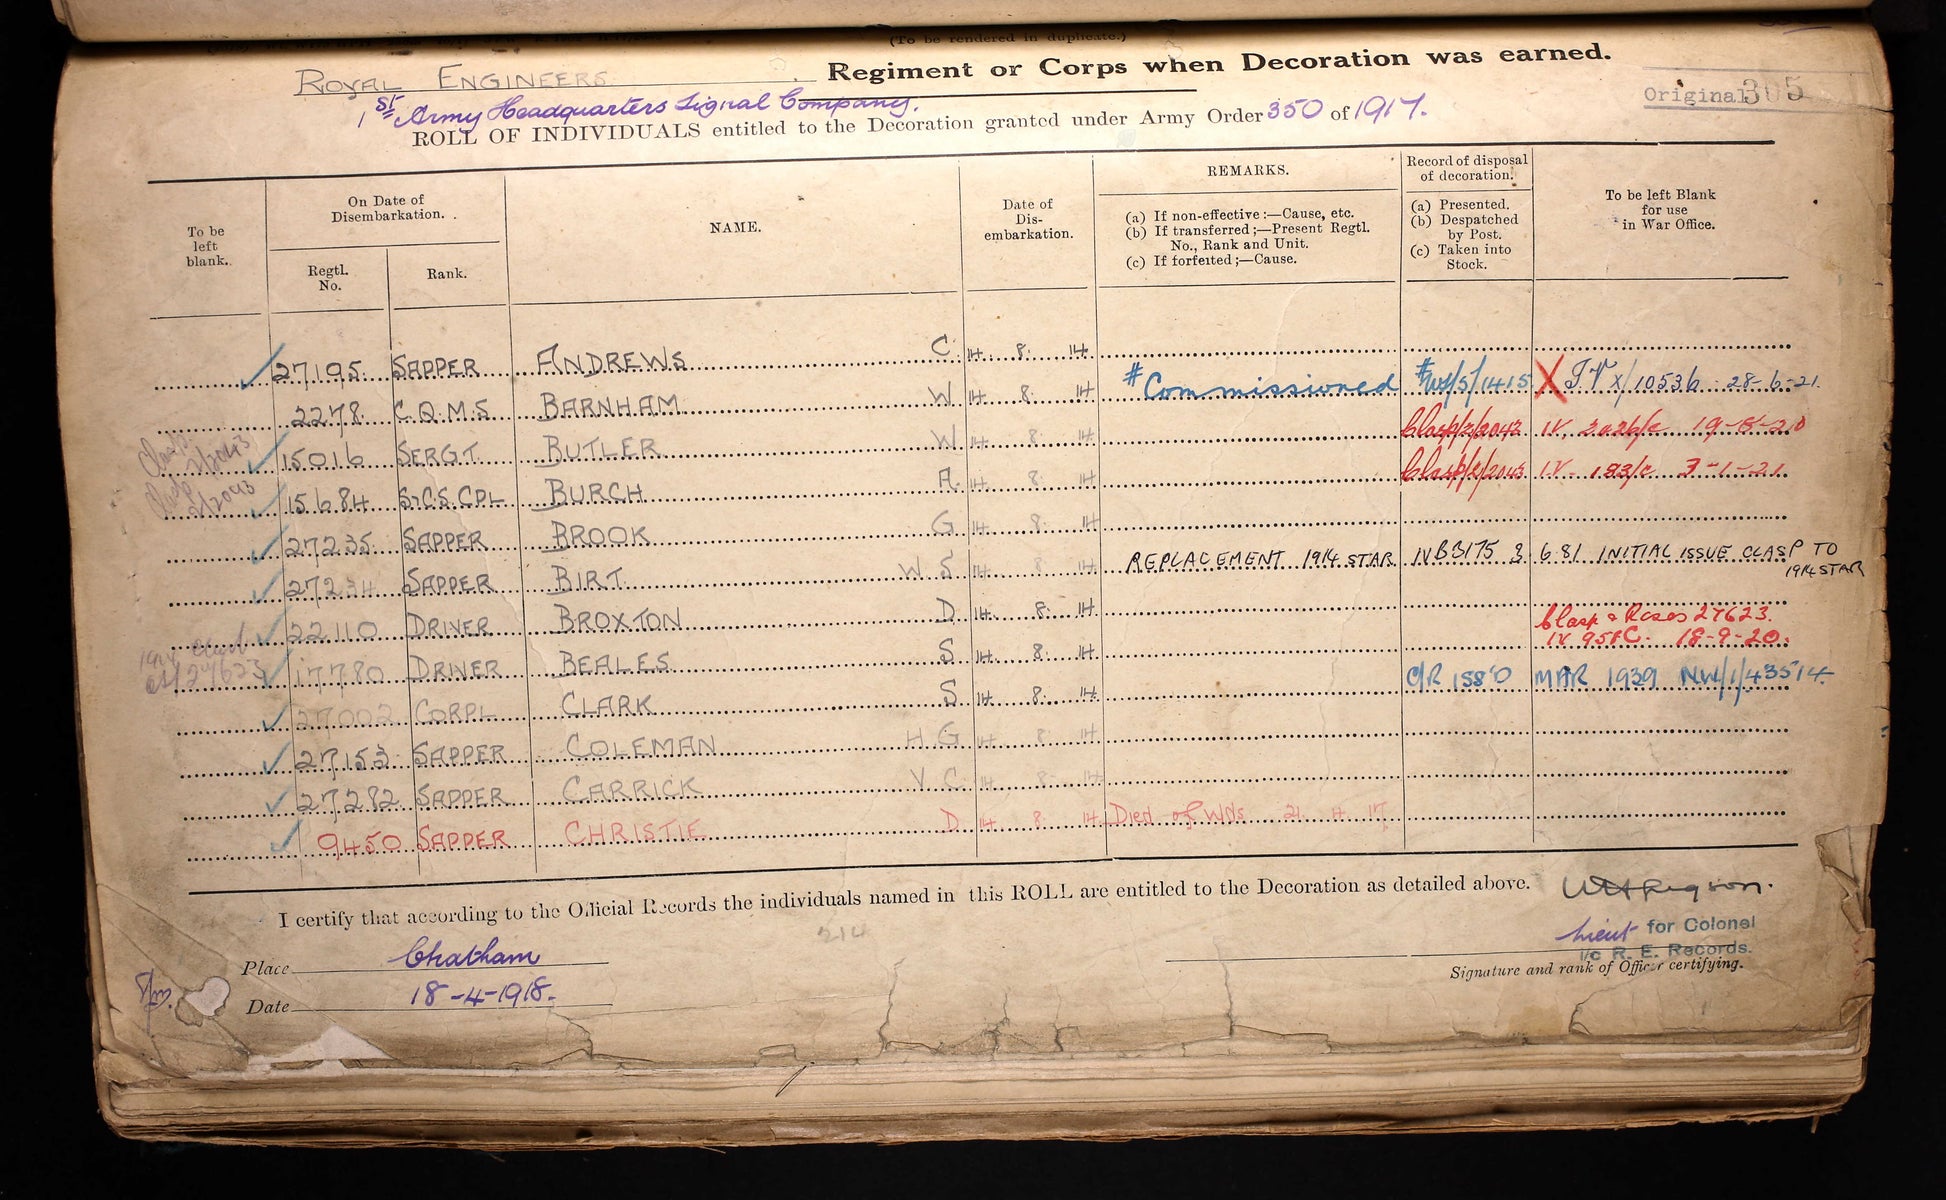 (To be rendered in duplicate.)
ROYAL ENGINEERS. Regiment or Corps when Decoration was earned.
Original 305
1st Army Headquarters Signal Company.
ROLL OF INDIVIDUALS entitled to the Decoration granted under Army Order 350 of 1917.
To be left blank.
On Date of Disembarkation.
Regtl. No.
Rank.
NAME.
Date of Dis-embarkation.
REMARKS.
(a) If non-effective:—Cause, etc.
(b) If transferred;—Present Regtl. No., Rank and Unit.
(c) If forfeited;—Cause.
Record of disposal of decoration.
(a) Presented.
(b) Despatched by Post.
(c) Taken into Stock.
To be left Blank for use in War Office.
27195 SAPPER ANDREWS C. 14 8. 14.
2278 C.Q.M.S BARNHAM W 14 8. 14 # Commissioned X I.V x/10536 28-6-21.
Clasp 2/2043
15016 SERGT. BUTLER W 14 8 14 Clasp/2/2043 I.V. 19-8-20
Clasp 2/2043
15684 CPL BURCH A. 14 8. 14 Clasp/2/2043 I.V. 183/c 3-1-21
27235 SAPPER BROOK G 14 8. 14
27234 SAPPER BIRT W.S 14 8 14 REPLACEMENT 1914 STAR IVB3175 3 6.81 INITIAL ISSUE CLASP TO 1914 STAR
22110 DRIVER BROXTON D 14. 8. 14.
1914 Clasp 27623
17780 DRIVER BEALES S 14. 8. 14. Clasp & Roses 27623.
IV 958C. 18-9-20.
27002 CORPL CLARK S 14. 8. 14. C/R 1580 MAR 1939 NW/1/43514
27153 SAPPER COLEMAN H G 14 8. 14
27282 SAPPER CARRICK V C 14 8 14
9450 SAPPER CHRISTIE D 14 8. 14 Died of Wds 21. 4. 17.
I certify that according to the Official Records the individuals named in this ROLL are entitled to the Decoration as detailed above.
214
Lieut for Colonel
i/c R. E. Records.
Signature and rank of Officer certifying.
Place Chatham
Date 18-4-1918.